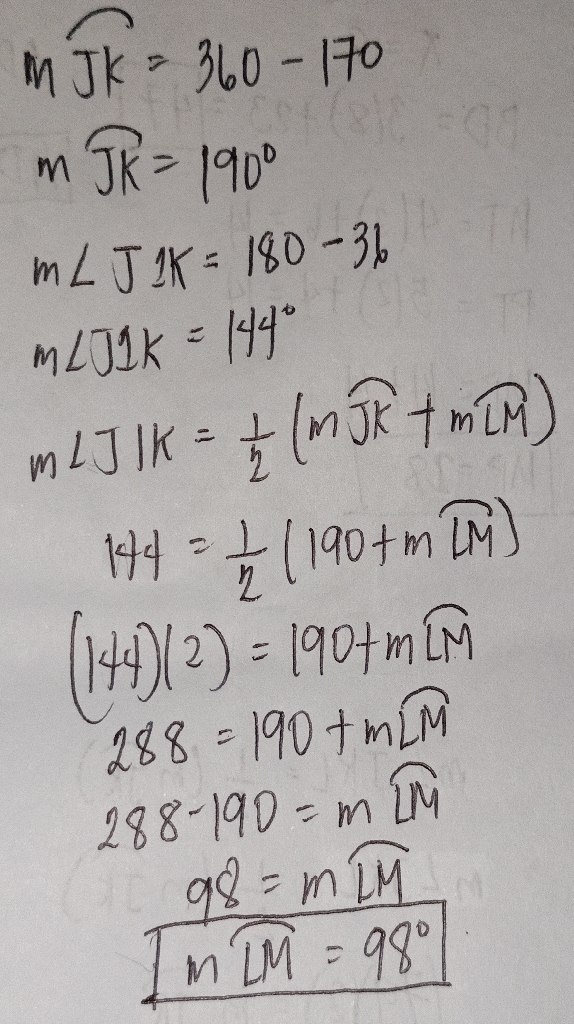 m JK = 360 - 170
m JK = 190°
m∠J1K = 180 - 36
m∠J1K = 144°
m∠J1K = 1/2 (m JK + m LM)
144 = 1/2 (190 + m LM)
(144)(2) = 190 + m LM
288 = 190 + m LM
288 - 190 = m LM
98 = m LM
m LM = 98°